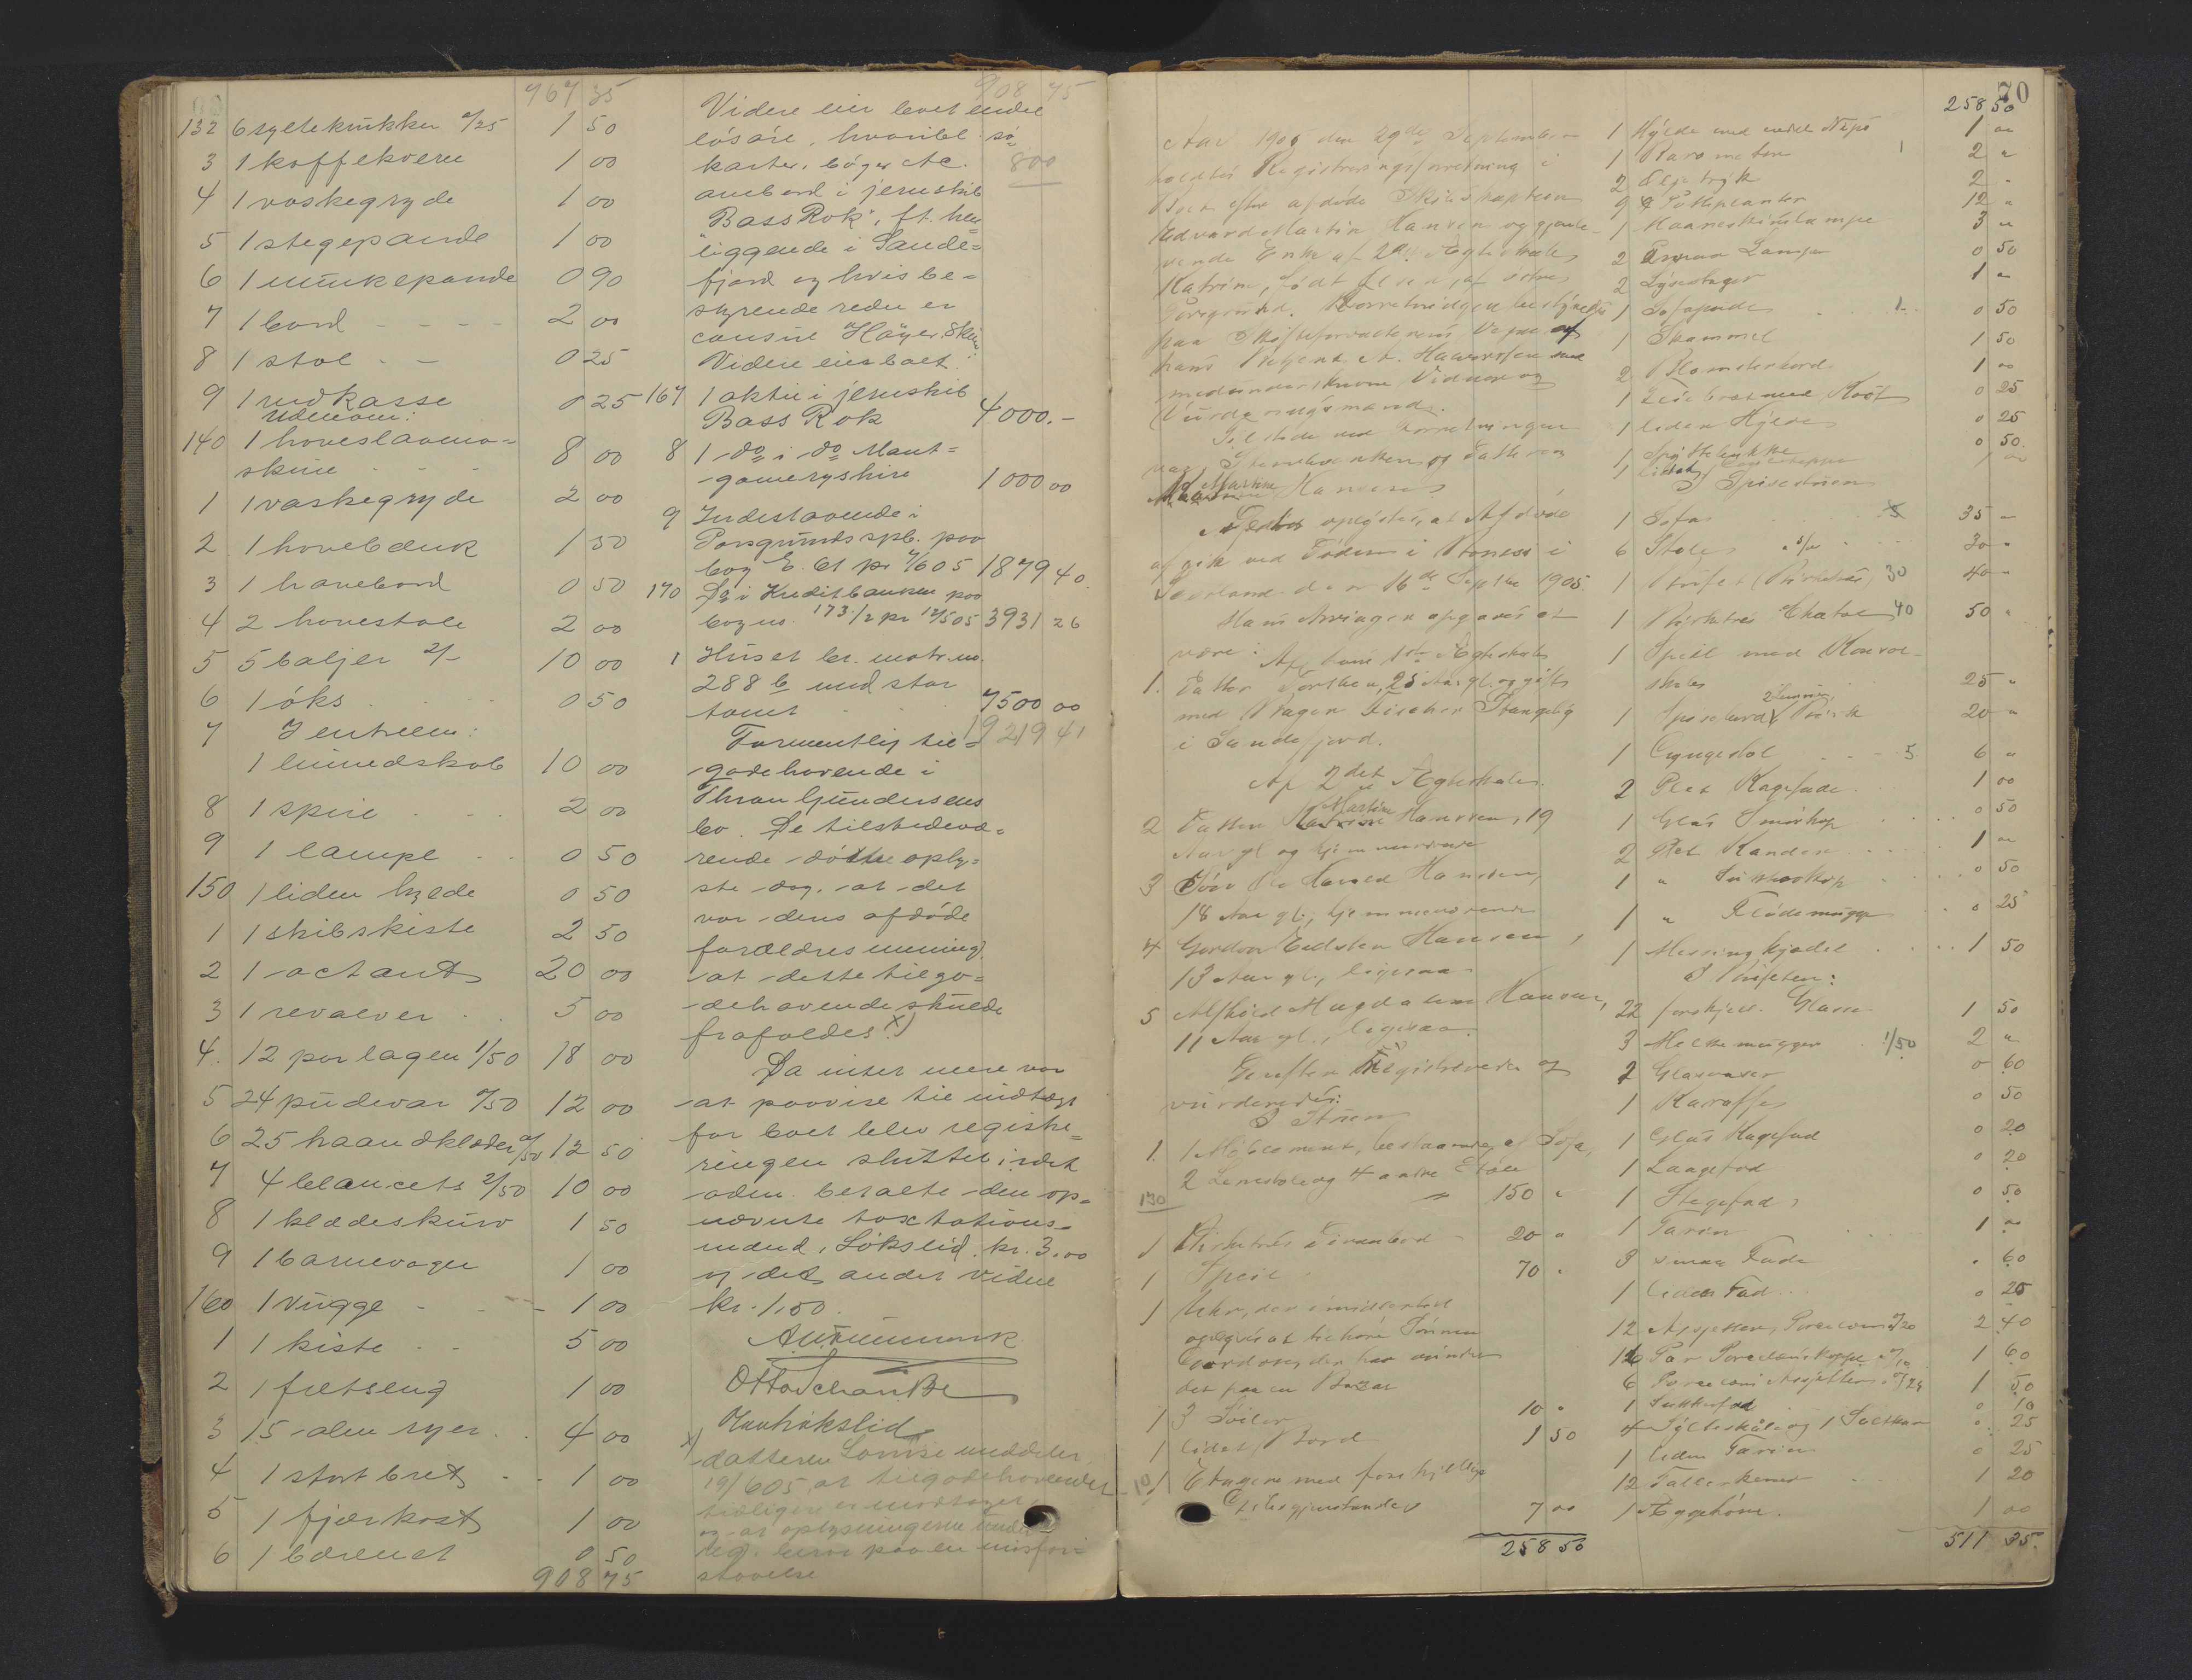 967 35
132 6 syltekrukker a/25 1 50
3 1 kaffekvern 1 00
4 1 vaskegryde 1 00
5 1 stegepande 1 00
6 1 munkepande 0 90
7 1 bord - - - - 2 00
8 1 stol - - 0 25
9 1 vedkasse 0 25
Udenom:
140 1 haveslaama=
skine - - - 8 00
1 1 vaskegryde 2 00
2 1 havebænk 1 50
3 1 havebord 0 50
4 2 havestole 2 00
5 5 baljer 2/- 10 00
6 1 öks 0 50
7 I entreen:
1 linnedskab 10 00
8 1 speil 2 00
9 1 lampe 0 50
150 1 liden hylde 0 50
1 1 skibskiste 2 50
2 1 octant 20 00
3 1 revolver 5 00
4. 12 par lagen 1/50 18 00
5 24 pudevar a/50 12 00
6 25 haandklæder a/50 12 50
7 4 blancets 2/50 10 00
8 1 klædeskurv 1 50
9 1 barnevogn 1 00
160 1 vugge - - 1 00
1 1 kiste 5 00
2 1 feltseng 1 00
3 15 alen ryer 4 00
4 1 stort bret 1 00
5 1 fjærkost 1 00
6 0 50
908 75
908 75
Videre eier boet endel
lösöre, hvoribl. sö=
karter, böger etc. 800
ombord i jernskib
"Bass Rok", f.t. hen=
liggende i Sande=
fjord og hvis be=
styrende reder er
consul Höyer, Skien
Videre eier boet:
167 1 aktie i jernskib
Bass Rok 4000.-
8 1 do i do Mont=
gomeryshire 1000 00
9 Indestaaende i
Porsgrunds spb. paa
bog 1879 40.
170 Do i Kreditbanken paa
bog no. 173 1/2 pr 12/5 05 3931 26
1 Huset br. matr. no.
288 b med stor
tomt 7500 00
19219 41
Formentlig til=
godehavende i
Thran Gundersens
bo. De tilstedevæ=
rende döttre oply=
ste dog, at det
var deres afdöde
forældres mening
at dette tilgo=
dehavende skulde
frafaldes. x)
Da intet mere var
at paavise til indtægt
for boet blev registre=
ringen sluttet, idet
den op=
nævnte taxtations=
mand, Lökslid kr. 3.00
og det andet vidne
kr. 1,50.
Otto Schanke
x) datteren Lovise meddeler
19/6 05, at tilgodehavendet
og at oplysningerne under
reg. beror paa en misfor=
staaelse
70
Aar 1905 den 29de September
holdtes Registreringsforretning i
Boet efter afdöde Skibskaptein
Edvard Martin Hansen og gjenle-
vende Enke af 2det Ægteskab
Katrine, födt Olsen, af östre
Porsgrund. Forretningen bestyredes
paa Skifteforvalterens Vegne af
hans med
medunderskrevne Vidner og
Vurderingsmænd.
Tilstede ved Forretningen
var Stervboenken og Datteren
Martine Hansen.
Det oplystes, at Afdöde
afgik ved Döden i Boness i
Skotland den 16de Septbr 1905.
Hans Arvinger opgaves at
være:
Af hans 1ste Ægteskab
1. Datter 25 Aar gl. og gift
med Fischer Stangeby
i Sandefjord.
Af 2det Ægteskab.
2 Datter Martine Hansen, 19
Aar gl og hjemmeværende
3 Sön Harald Hansen,
18 Aar gl., hjemmeværende
4 Gordon Hansen,
13 Aar gl., ligesaa
5 Alfhild Magdalene Hansen,
11 Aar gl., ligesaa.
Derefter Registreredes og
vurderedes:
I Stuen
1. 1 Möblement, bestaaende af Sofa,
2 Lænestole og 4 andre Stole
130 150 "
1 Birketræs Divanbord 20 "
1 Speil 70 "
1 Uhr, der imidlertid
opgives at tilhöre Sönnen
Gordon, der har vundet
det paa en Bazar
1 3 Söiler 10 "
1 lidet Bord 1 50
10 1 Etagere med forskjellige
Glasgjenstander 7 00
258 50
258 50
1 Hylde med endel Nips 1 00
1 Barometer 2 "
2 Oljetryk 2 "
9 Potteplanter 12 "
1 Maaneskinslampe 3 "
2 Smaa Lamper 0 50
2 Lysestager 1 "
1 Sofapude 0 50
1 Skammel 1 50
2 Blomsterbord 1 00
1 0 25
1 liden Hylde 0 25
1 Spyttebakke 0 50.
1 lidet 1 00
I Spisestuen
1 Sofa 35 -
6 Stole 5/- 30 "
1 Buffet (Birketræs) 30 40 -
1 Birketræs Chatol 40 50 "
1 Speil med Konsol-
25 "
1 Spisebord, Birk 20 "
1 Gyngestol 5 6 "
2 Plet Kagefade 1 00
1 Glas Smörkop 0 50
2 Plet Kander 1 00
1 " Sukkerkop 0 50
1 " Flödemugge 0 25
1 Messingkjedel 1 50
I Buffeten:
22 forskjell. Glasse 1 50
3 Melkemugger 1/50 2 "
2 Glasvaser 0 60
1 Karaffel 0 50
1 Glas Kagefad 0 20
1 Laagefad 0 20
1 Stegefad 0 50
1 Tarin 1 00
3 smaa Fade " 60
1 liden Fad 0 25
12 Asjetter, Porcelæns a/20 2 40
16 Par Porcelænskopper a/10 1 60
6 Porcelæns Asjetter a/25 1 50
1 Sukkerfad 0 10
4 Sylteskåle og 1 Saltkar 0 25
1 liden Tarin 0 25
12 Tallerkener 1 20
1 Æggehöne. 1 00
511 35.